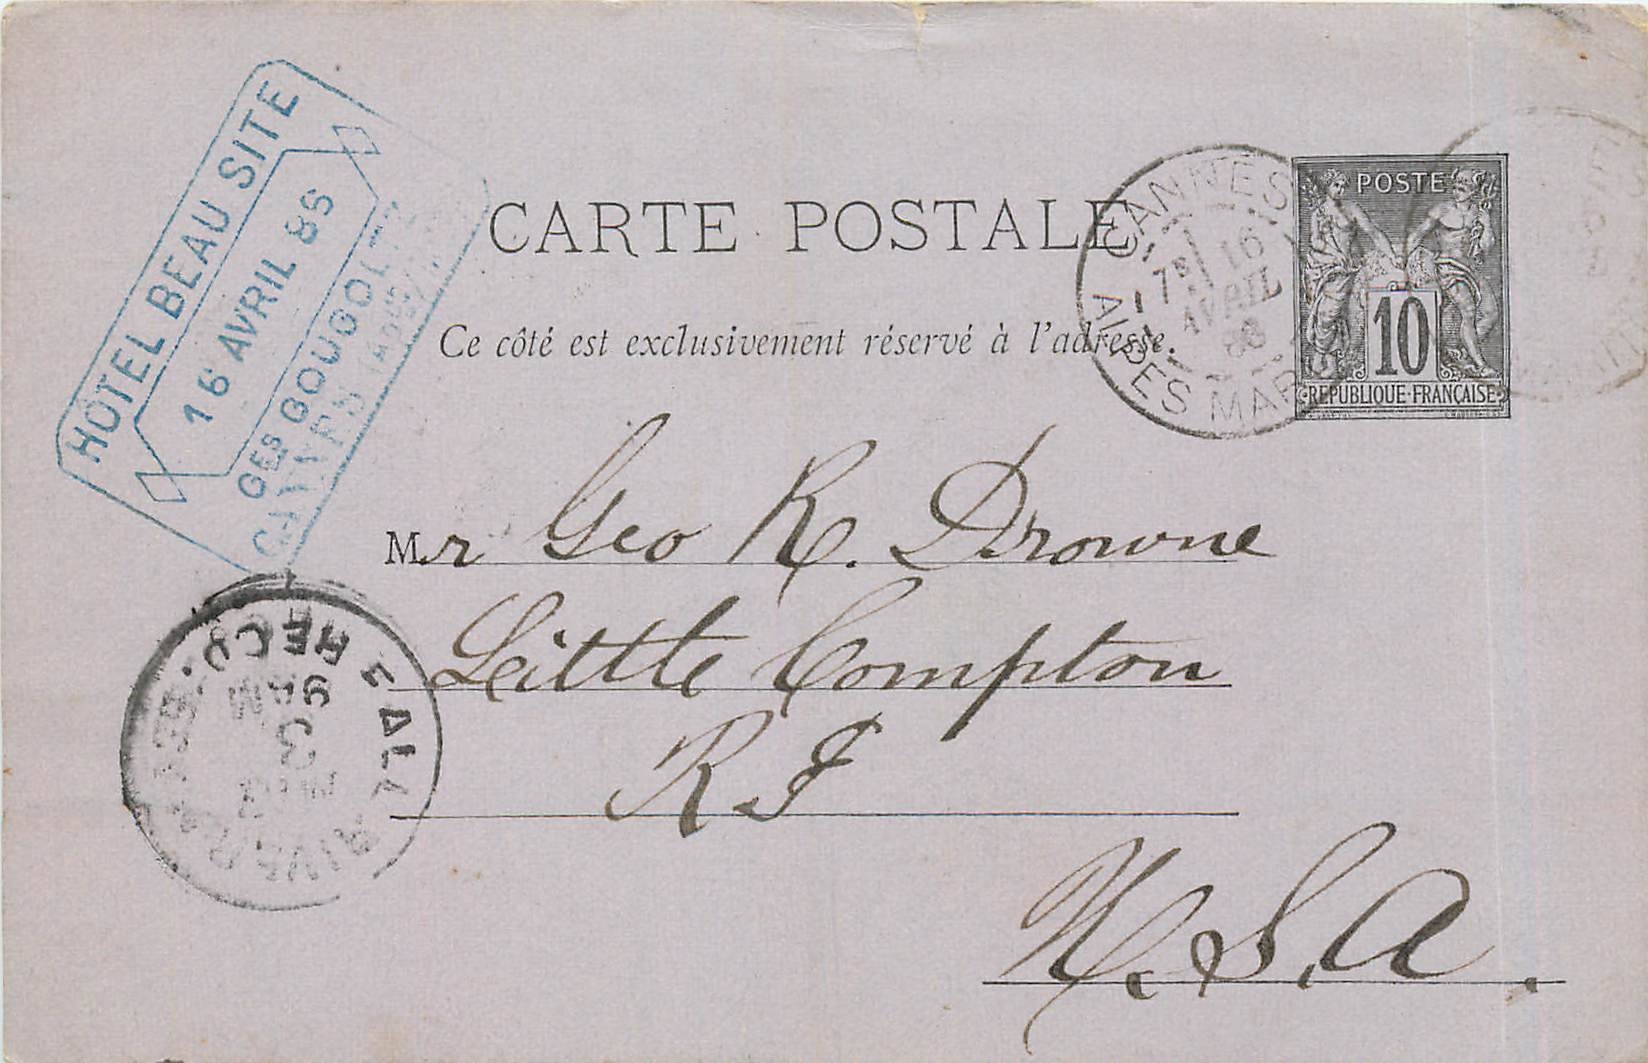 HÔTEL BEAU SITE
16 AVRIL 88
GES GOUGOLTZ
CANNES
CARTE POSTALE
Ce côté est exclusivement réservé à l'adresse.
CANNES
7E 16
AVRIL
88
ALPES MAR
POSTE
10
REPUBLIQUE FRANÇAISE
Mr Geo R. Drowne
Little Compton
R I
U. S. A.
FALL RIVER MASS.
REC'D.
9 AM
3